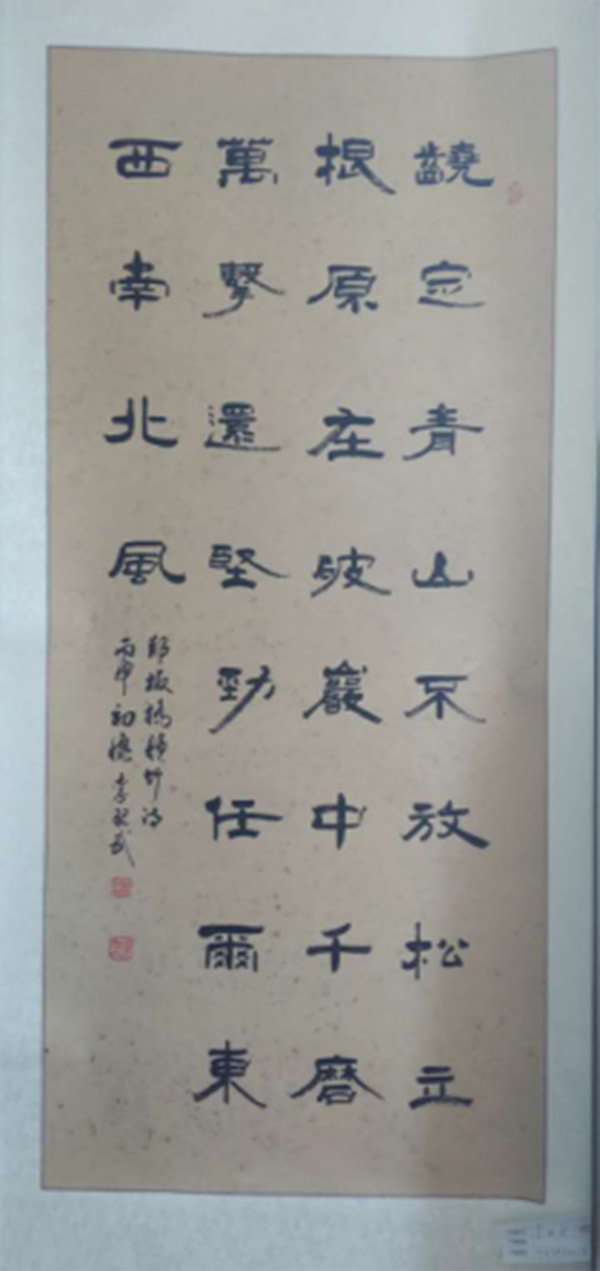 齩定青山不放松立
根原在破巖中千磨
萬擊還堅勁任爾東
西南北風
鄭板橋題竹詩
丙申初穐李